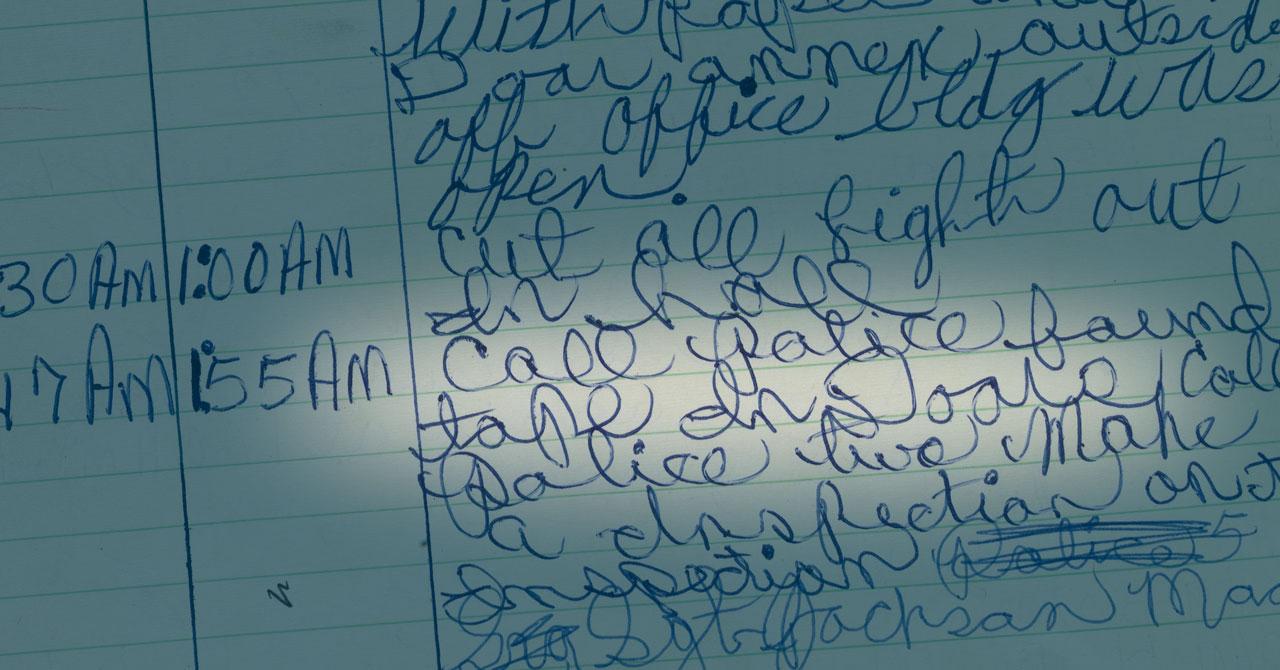 With
Door annex outside
off office bldg was
open.
30 AM 1:00 AM cut all light out
In hall
17 AM 1:55 AM Call Police found
tape In Doore Call
Police two Make
a Inspection
Inspection Police 5
Sgt Jackson Mac